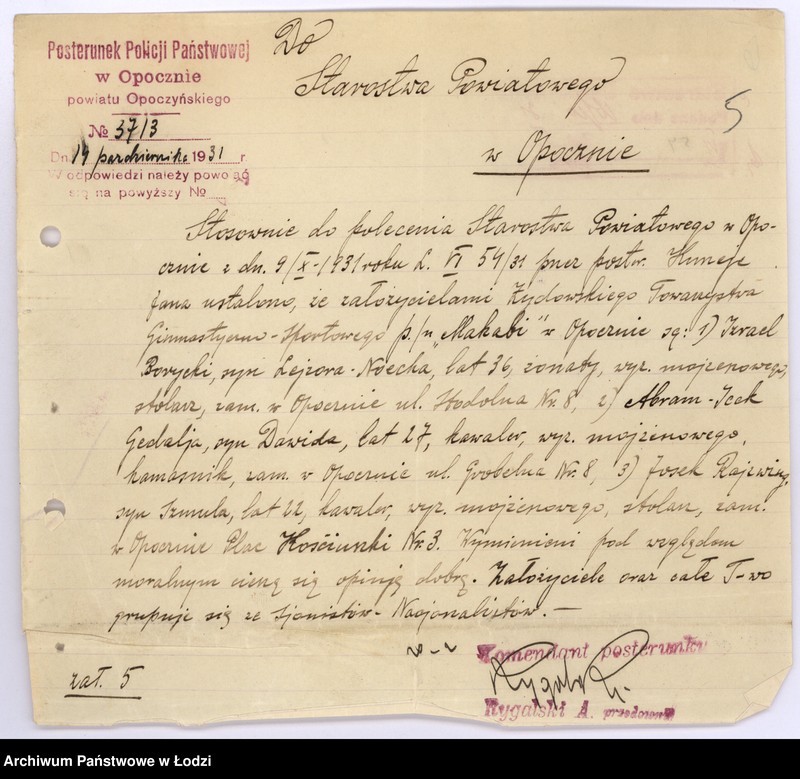 Posterunek Policji Państwowej
w Opocznie
powiatu Opoczyńskiego
№ 3713
Dn. 14 października 1931 r.
W odpowiedzi należy powołać
się na powyższy №
Do
Starostwa Powiatowego
w Opocznie
5
Stosownie do polecenia Starostwa Powiatowego w Opo-
cznie z dn. 9/X-1931 roku L. VI 54/31 przez postr.
ustalono, że założycielami Żydowskiego Towarzystwa
Gimnastyczno-Sportowego p./n „Makabi" w Opocznie są: 1) Izrael
Borycki, syn Lejzora-Noecha, lat 36, żonaty, wyz. mojżeszowego,
stolarz, zam. w Opocznie ul. Stodolna Nr. 8, 2) Abram-Icek
Gedalja, syn Dawida, lat 27, kawaler, wyz. mojżeszowego,
kamasznik, zam. w Opocznie ul. Grobelna Nr. 8, 3) Josek
syn Szmula, lat 22, kawaler, wyz. mojżeszowego, stolarz, zam.
w Opocznie Plac Kościuszki Nr. 3. Wymienieni pod względem
moralnym cieszą się opinją dobrą. Założyciele oraz całe T-wo
grupuje się ze Sjonistów-Nacjonalistów. —
zał. 5
Komendant posterunku
Rygalski A. przodownik
Archiwum Państwowe w Łodzi